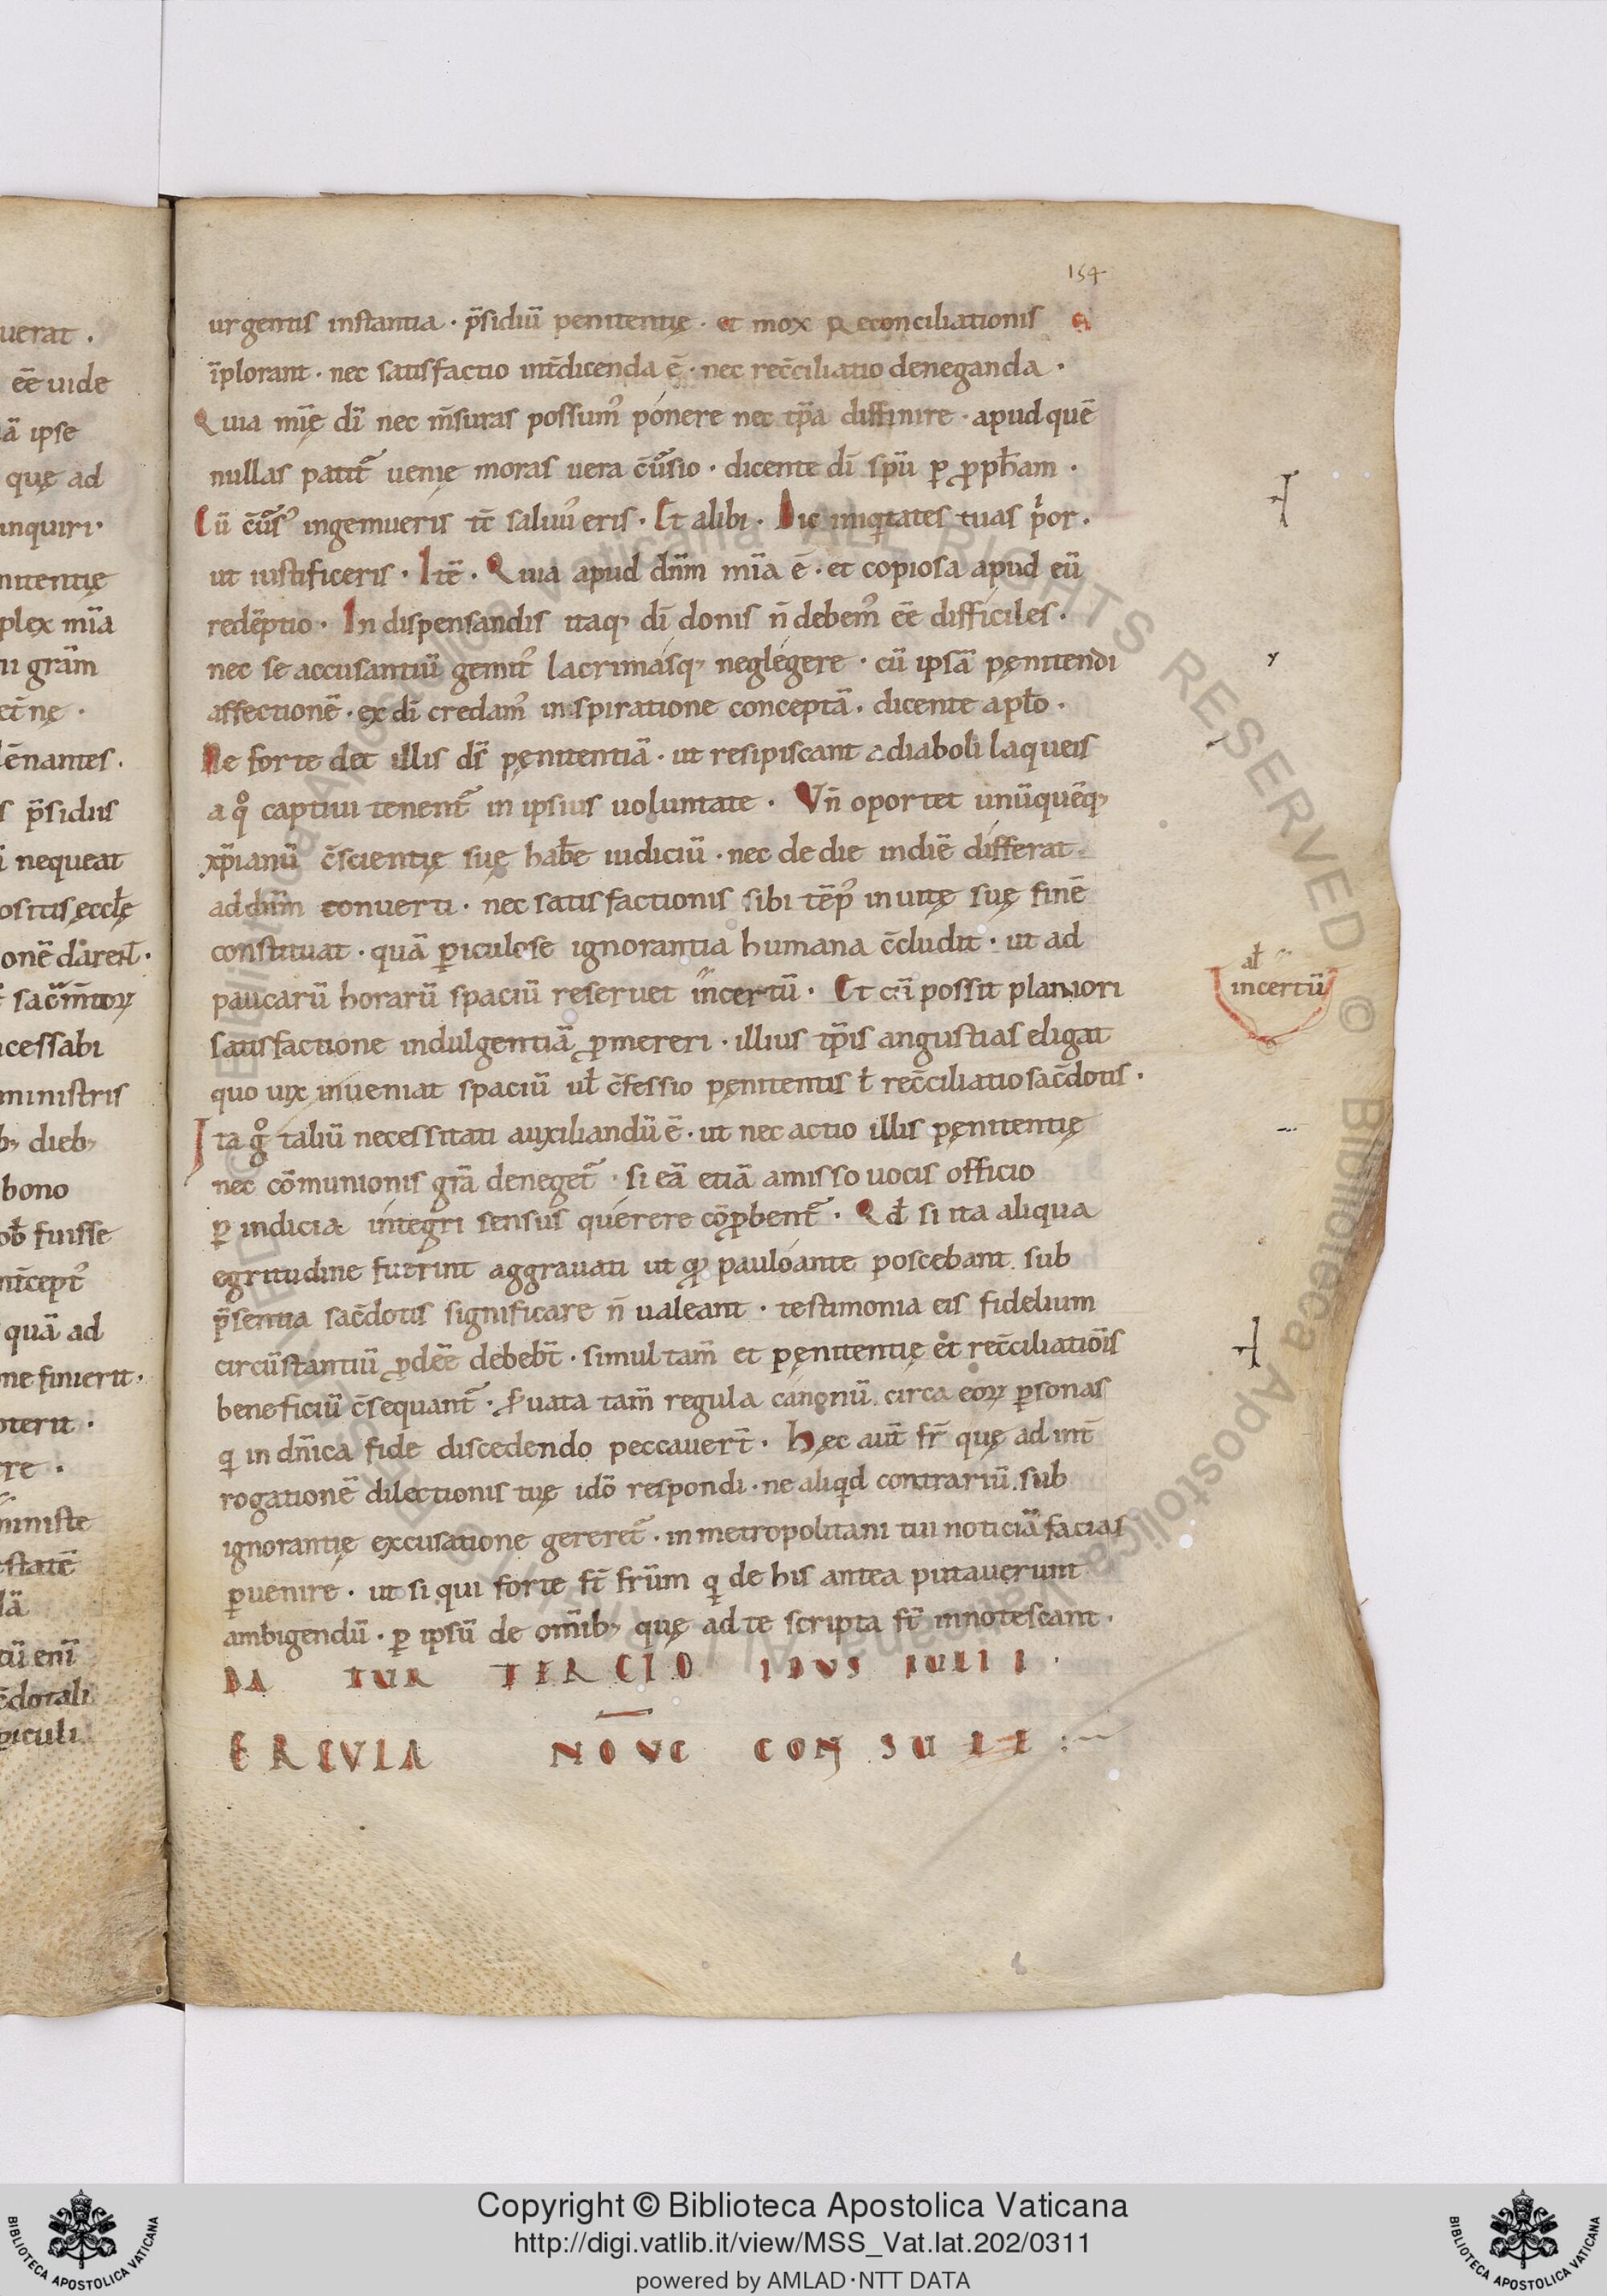 154
urgentis instantia · p̄sidiū penitentię · et mox Reconciliationis
īplorant · nec satisfactio int̄dicenda ē · nec rec̄ciliatio deneganda ·
Quia mīę dī nec m̄suras possumꝰ ponere nec tp̄a diffinire · apud quē
nullas patit᷑ uenię moras uera c̄uersio · dicente dī sp̄u ꝑ ꝓph̄am ·
Cū c̄uersꝰ ingemueris tc̄ saluꝰ eris · Et alibi · Dic iniqͥtates tuas pͥor ·
ut iustificeris · Itē · Quia apud dn̄m mīa ē · et copiosa apud eū
redēptio · In dispensandis itaq; dī donis n̄ debemꝰ eē difficiles ·
nec se accusantiū gemitꝰ lacrimasq; neglégere · cū ipsā pęnitendi
affectionē · ex dī credamꝰ inspiratione conceptā · dicente apl̄o ·
Ne forte det illis ds̄ pęnitentiā · ut resipiscant a diaboli laqueis
a qͦ captiui tenent᷑ in ipsius uoluntate · Vn̄ oportet unūquēq;
xp̄ianū c̄scientię suę hab̄e iudiciū · nec de die indiē différat
ad dn̄m conuerti · nec satisfactionis sibi tēpꝰ in uitę suę finē
constituat · quā ꝑiculose ignorantia humana c̄cludit · ut ad
paucarū horarū spaciū reseruet incertū · Et cū possit planiori
satisfactione indulgentiā ꝓmereri · illius tp̄is angustias eligat
quo uix inueniat spaciū ul̄ c̄fessio pęnitentis ł rec̄ciliatio sac̄dotis ·
al̄
incertū
Ita gͦ taliū necessitati auxiliandū ē · ut nec actio illis pęnitentię
nec cōmunionis gr̄a deneget᷑ · si eā etiā amisso uocis officio
ꝑ indicia íntegri sensus querere cōꝓbent᷑ · Qd̄ si ita aliqua
egritudine fuerint aggrauati ut qͦ pauloánte poscebant sub
p̄sentia sac̄dotis significare n̄ ualeant · testimonia eis fidelium
circūstantiū ꝓdeē debebt̄ · simul tam̄ et pęnitentię et rec̄ciliatiōis
beneficiū c̄sequant᷑ · Seruata tam̄ regula canonū circa eoꝝ ꝑsonas
qͥ in dn̄ica fide discedendo peccauert̄ · Hęc aut̄ fr̄ quę ad int̄
rogationē dilectionis tuę idō respondi · ne aliqͥd contrariū sub
ignorantię excusatione gereret᷑ · in metropolitani tui noticiā facias
ꝑuenire · ut si qui forte st̄ fr̄um qͥ de his antea putauerunt
ambigendū · ꝑ ipsū de om̄ib; quę ad te scripta st̄ innotescant ·
DATUR TERCIO IDVS IULII ·
ERCVLA NO VC CONSULE :~
Copyright © Biblioteca Apostolica Vaticana
http://digi.vatlib.it/view/MSS_Vat.lat.202/0311
powered by AMLAD·NTT DATA
BIBLIOTECA APOSTOLICA VATICANA
BIBLIOTECA APOSTOLICA VATICANA